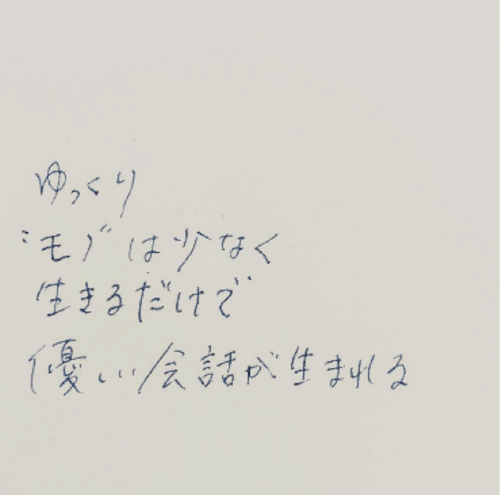 ゆっくり
は少なく
生きるだけで
優しい会話が生まれる